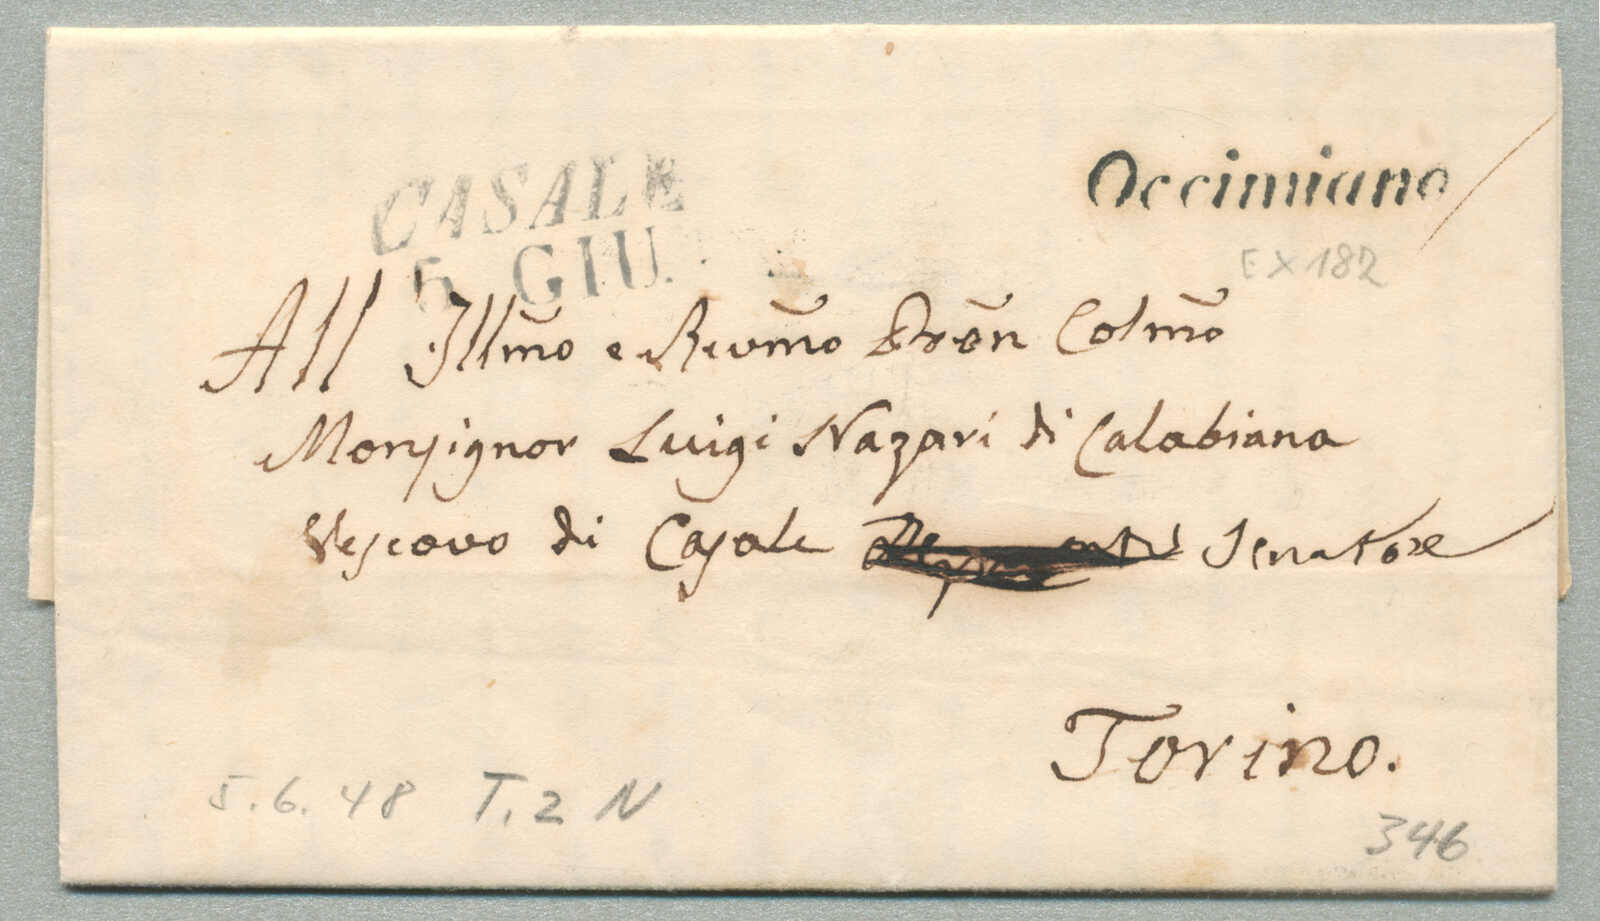 CASALE
5 GIU.
Occimiano
EX 182
All Illmo e Revmo Colmo
Monsignor Luigi Nazari di Calabiana
Vescovo di Casale Senatore
Torino.
5.6.48 T. 2 N
346